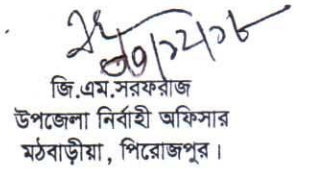 ৩০/১২/১৮
জি.এম.সরফরাজ
উপজেলা নির্বাহী অফিসার
মঠবাড়ীয়া, পিরোজপুর।